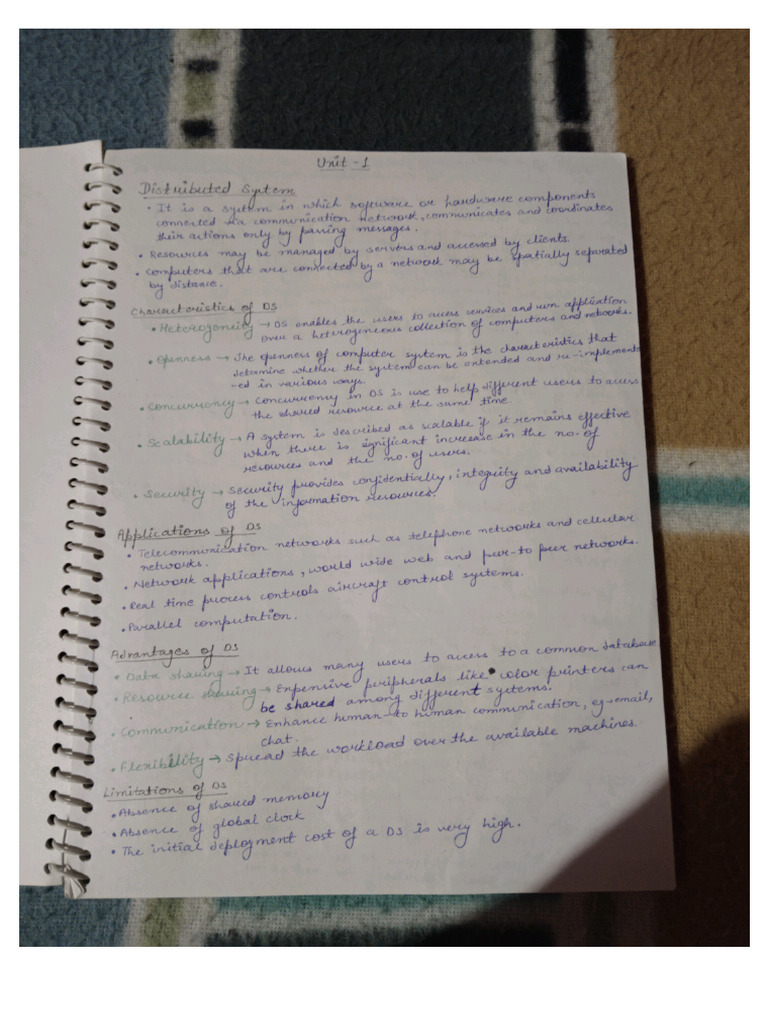 Unit - 1
Distributed System
• It is a system in which software or hardware components
connected via communication network, communicates and coordinates
their actions only by passing messages.
• Resources may be managed by servers and accessed by clients.
• Computers that are connected by a network may be spatially separated
by distance.
Characteristics of DS
• Heterogeneity → DS enables the users to access services and run application
over a heterogeneous collection of computers and networks.
• Openness → The openness of computer system is the characteristics that
determine whether the system can be extended and re-implement
-ed in various ways.
• Concurrency → Concurrency in DS is use to help different users to access
the shared resource at the same time.
• Scalability → A system is described as scalable if it remains effective
when there is significant increase in the no. of
resources and the no. of users.
• Security → Security provides confidentially, integrity and availability
of the information resources.
Applications of DS
• Telecommunication networks such as telephone networks and cellular
networks.
• Network applications, world wide web and peer-to peer networks.
• Real time process controls aircraft control systems.
• Parallel computation.
Advantages of DS
• Data sharing → It allows many users to access to a common database
• Resource sharing → Expensive peripherals like color printers can
be shared among different systems.
• Communication → Enhance human-to human communication, eg → email,
chat.
• Flexibility → Spread the workload over the available machines.
Limitations of DS
• Absence of shared memory
• Absence of global clock
• The initial deployment cost of a DS is very high.